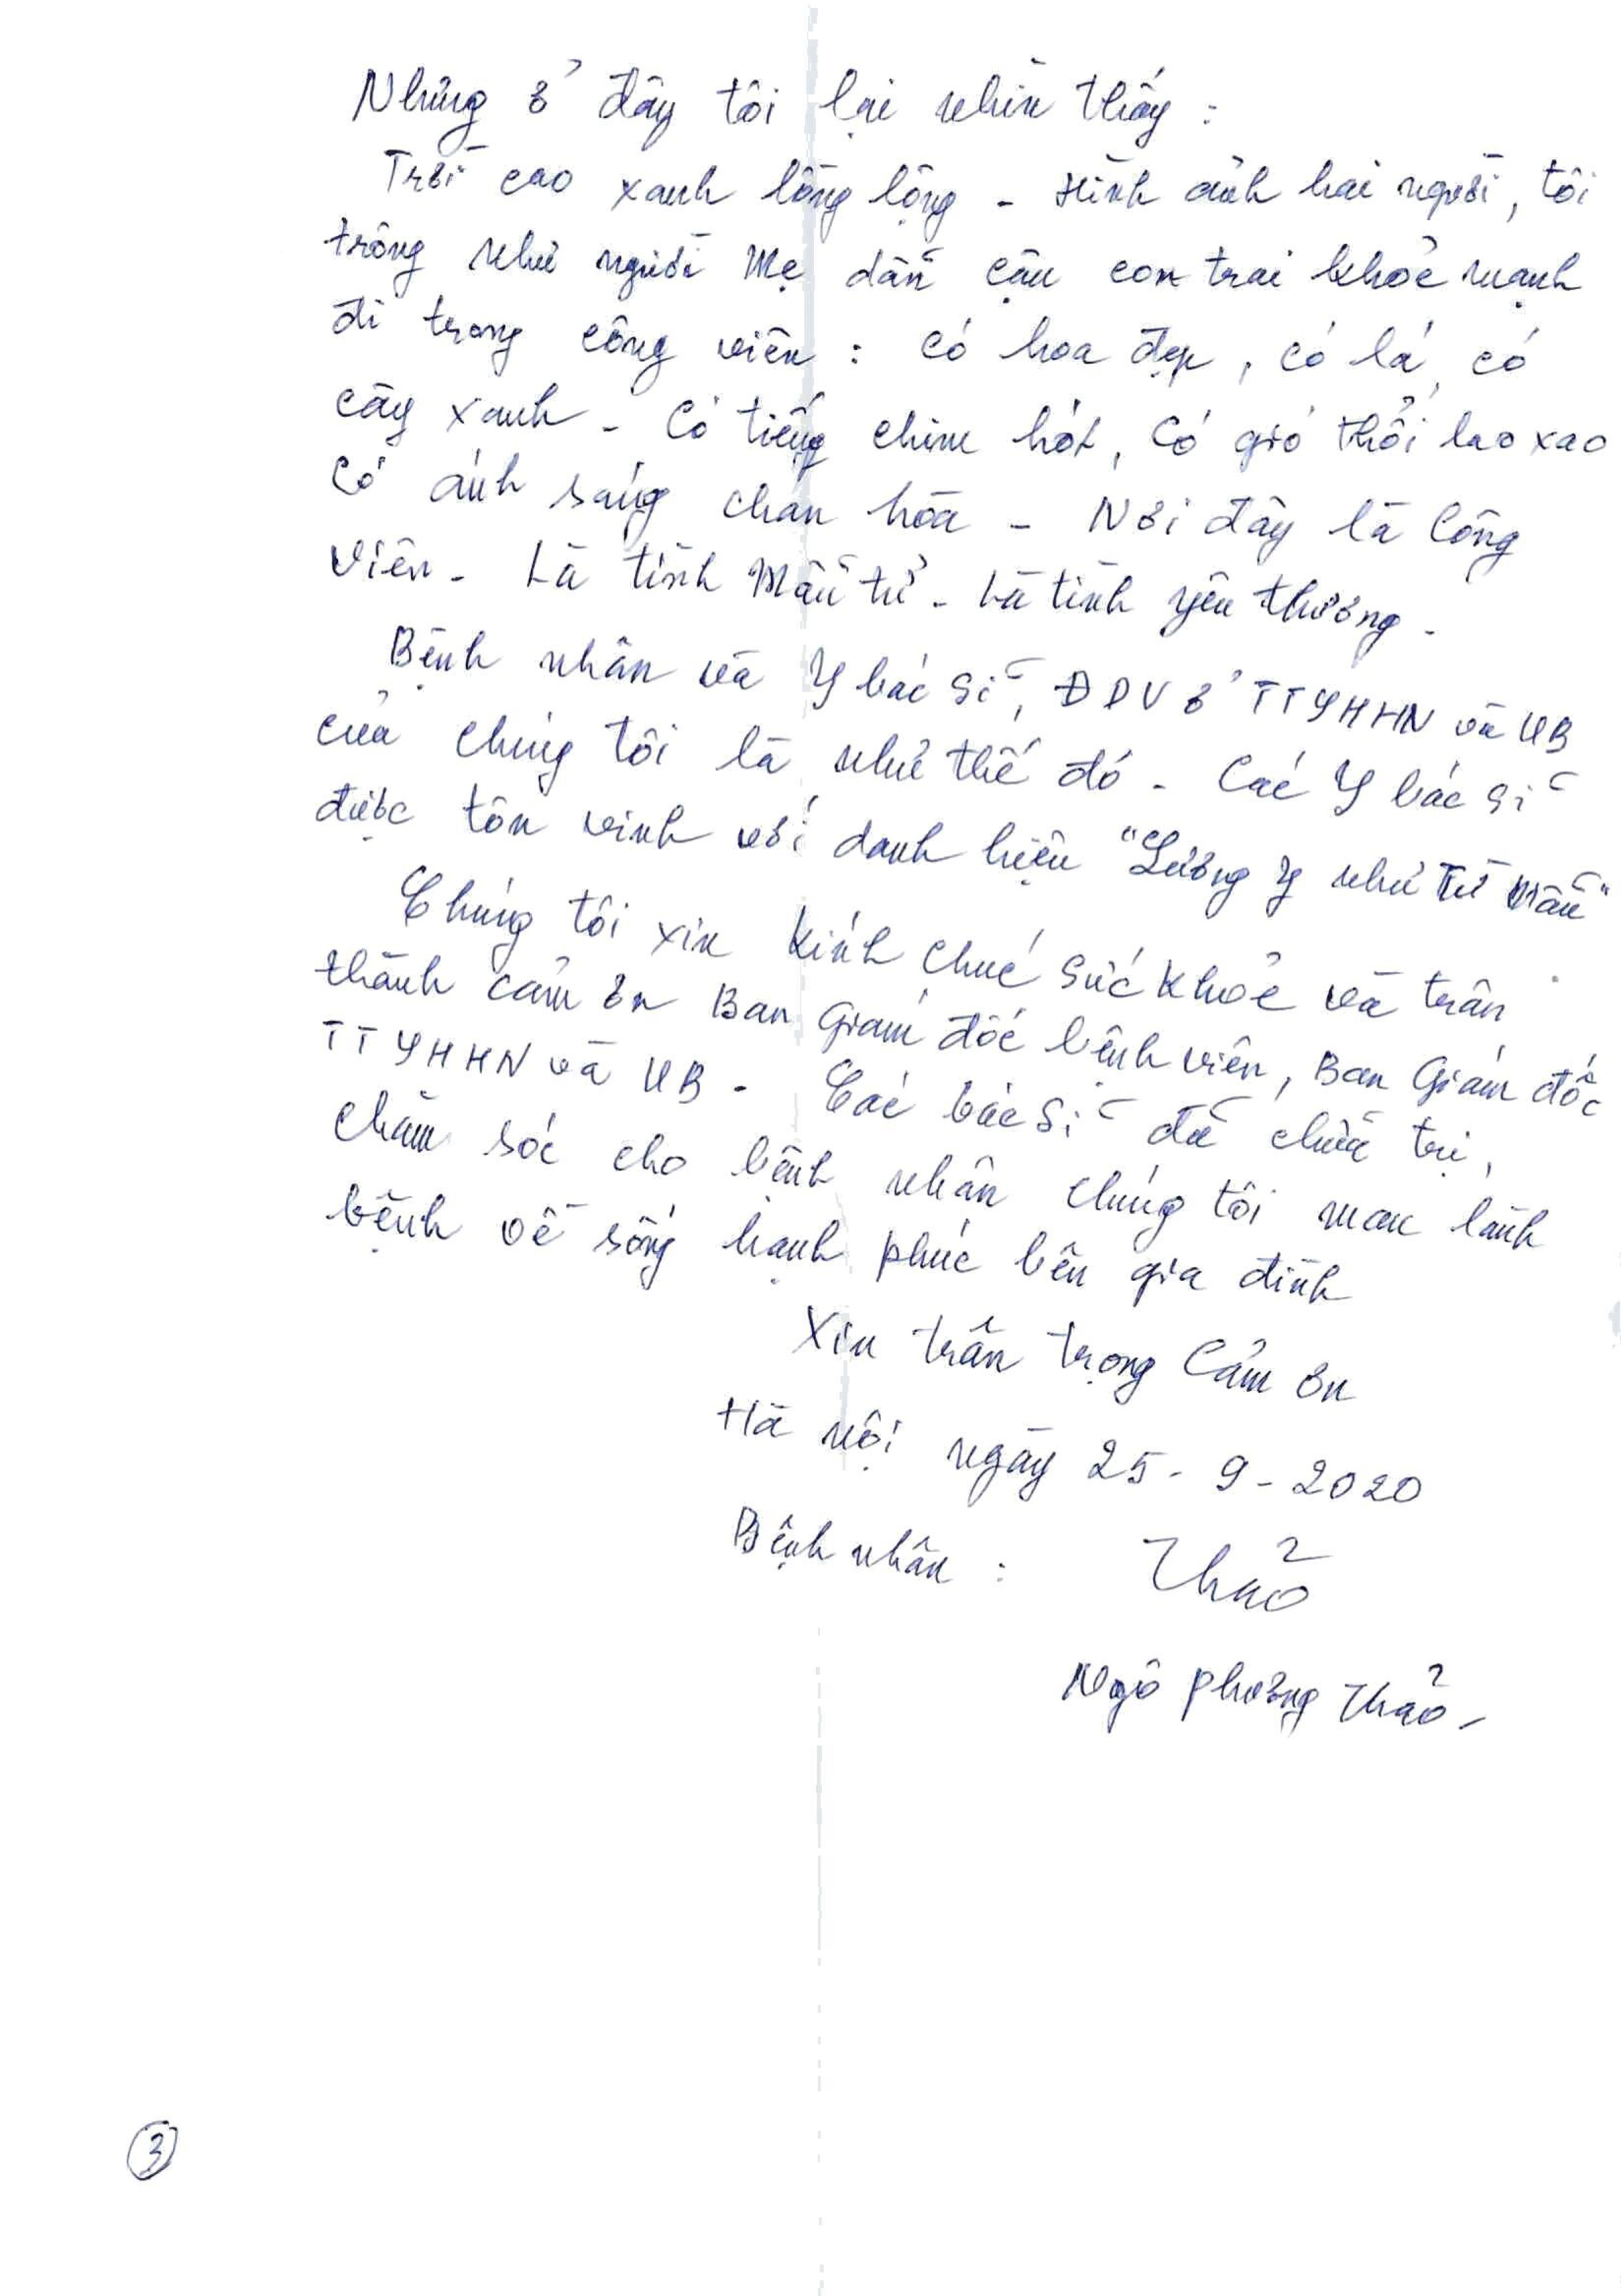 Nhưng ở đây tôi lại nhìn thấy :
Trời cao xanh lồng lộng - Hình ảnh hai người, tôi
trông như người Mẹ dẫn cậu con trai khỏe mạnh
đi trong công viên : có hoa đẹp, có lá, có
cây xanh - Có tiếng chim hót, có gió thổi lao xao
Có ánh sáng chan hòa - Nơi đây là Công
Viên - Là tình Mẫu tử - Là tình yêu thương -
Bệnh nhân và Y bác sĩ, ĐDV ở TTYHHN và UB
của chúng tôi là như thế đó - Các Y bác sĩ
được tôn vinh với danh hiệu "Lương y như Từ Mẫu"
Chúng tôi xin kính chúc sức khỏe và trân
thành cảm ơn Ban Giám đốc bệnh viện, Ban Giám đốc
TTYHHN và UB - Các bác sĩ đã chữa trị,
chăm sóc cho bệnh nhân chúng tôi mau lành
bệnh về sống hạnh phúc bên gia đình
Xin trân trọng Cảm ơn
Hà Nội ngày 25 - 9 - 2020
Bệnh nhân : Thảo
Ngô Phương Thảo -
3